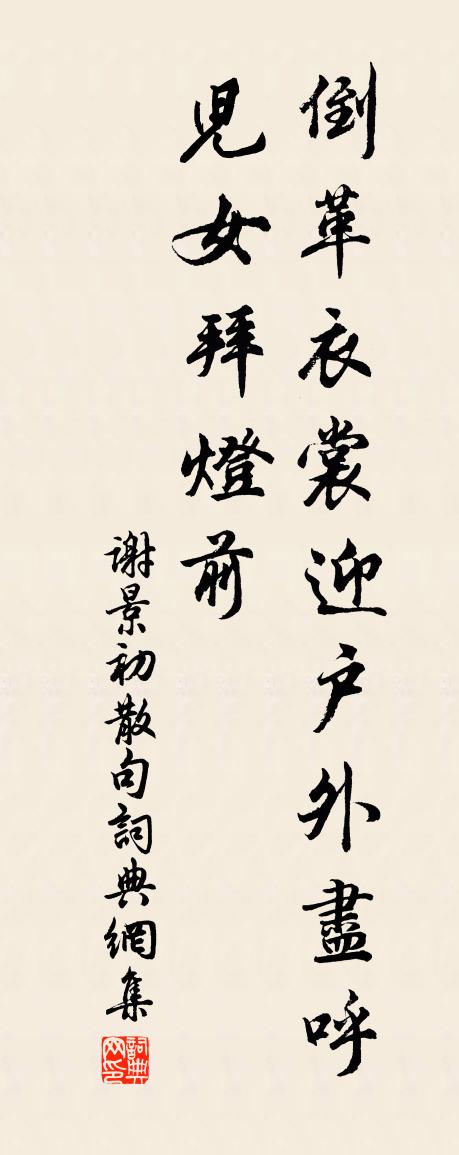 倒革衣裳迎户外盡呼
兒女拜燈前
謝景初散句詞典網集
詞典网印